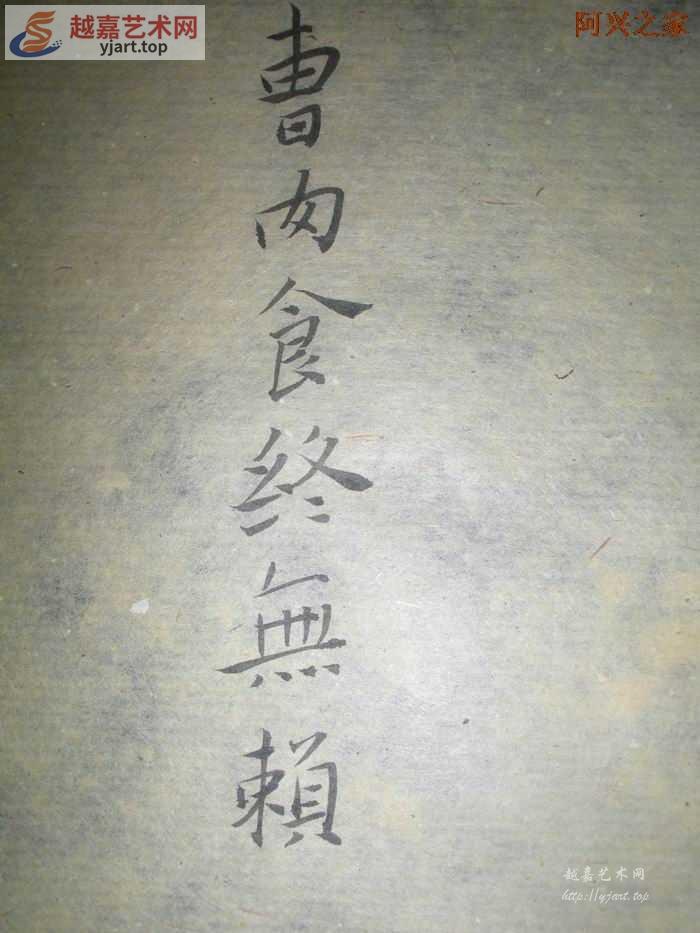 越嘉艺术网
yjart.top
阿兴之家
曹肉食終無賴
越嘉艺术网
http://yjart.top